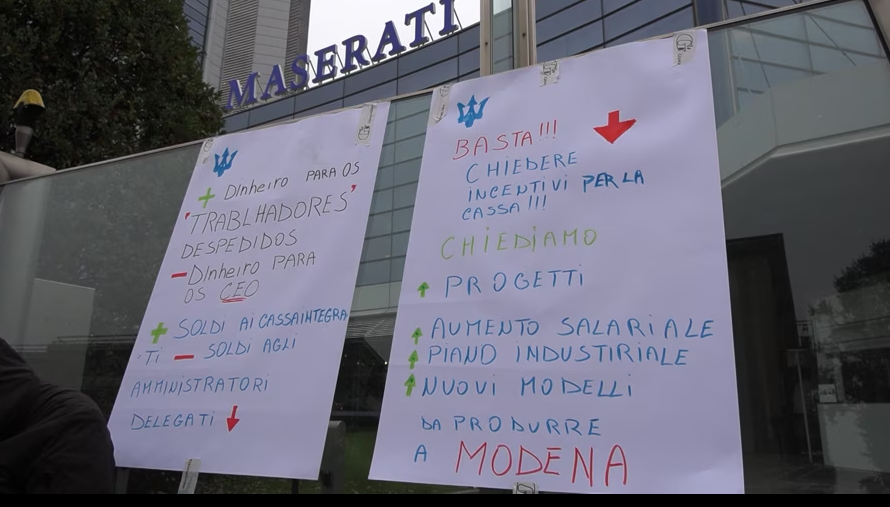 MASERATI
+ DINHEIRO PARA OS
'TRABLHADORES'
DESPEDIDOS
- DINHEIRO PARA
OS CEO
+ SOLDI AI CASSAINTEGRA
'TI - SOLDI AGLI
AMMINISTRATORI
DELEGATI
BASTA!!!
CHIEDERE
INCENTIVI PER LA
CASSA!!!
CHIEDIAMO
PROGETTI
AUMENTO SALARIALE
PIANO INDUSTIRIALE
NUOVI MODELLI
DA PRODURRE
A MODENA